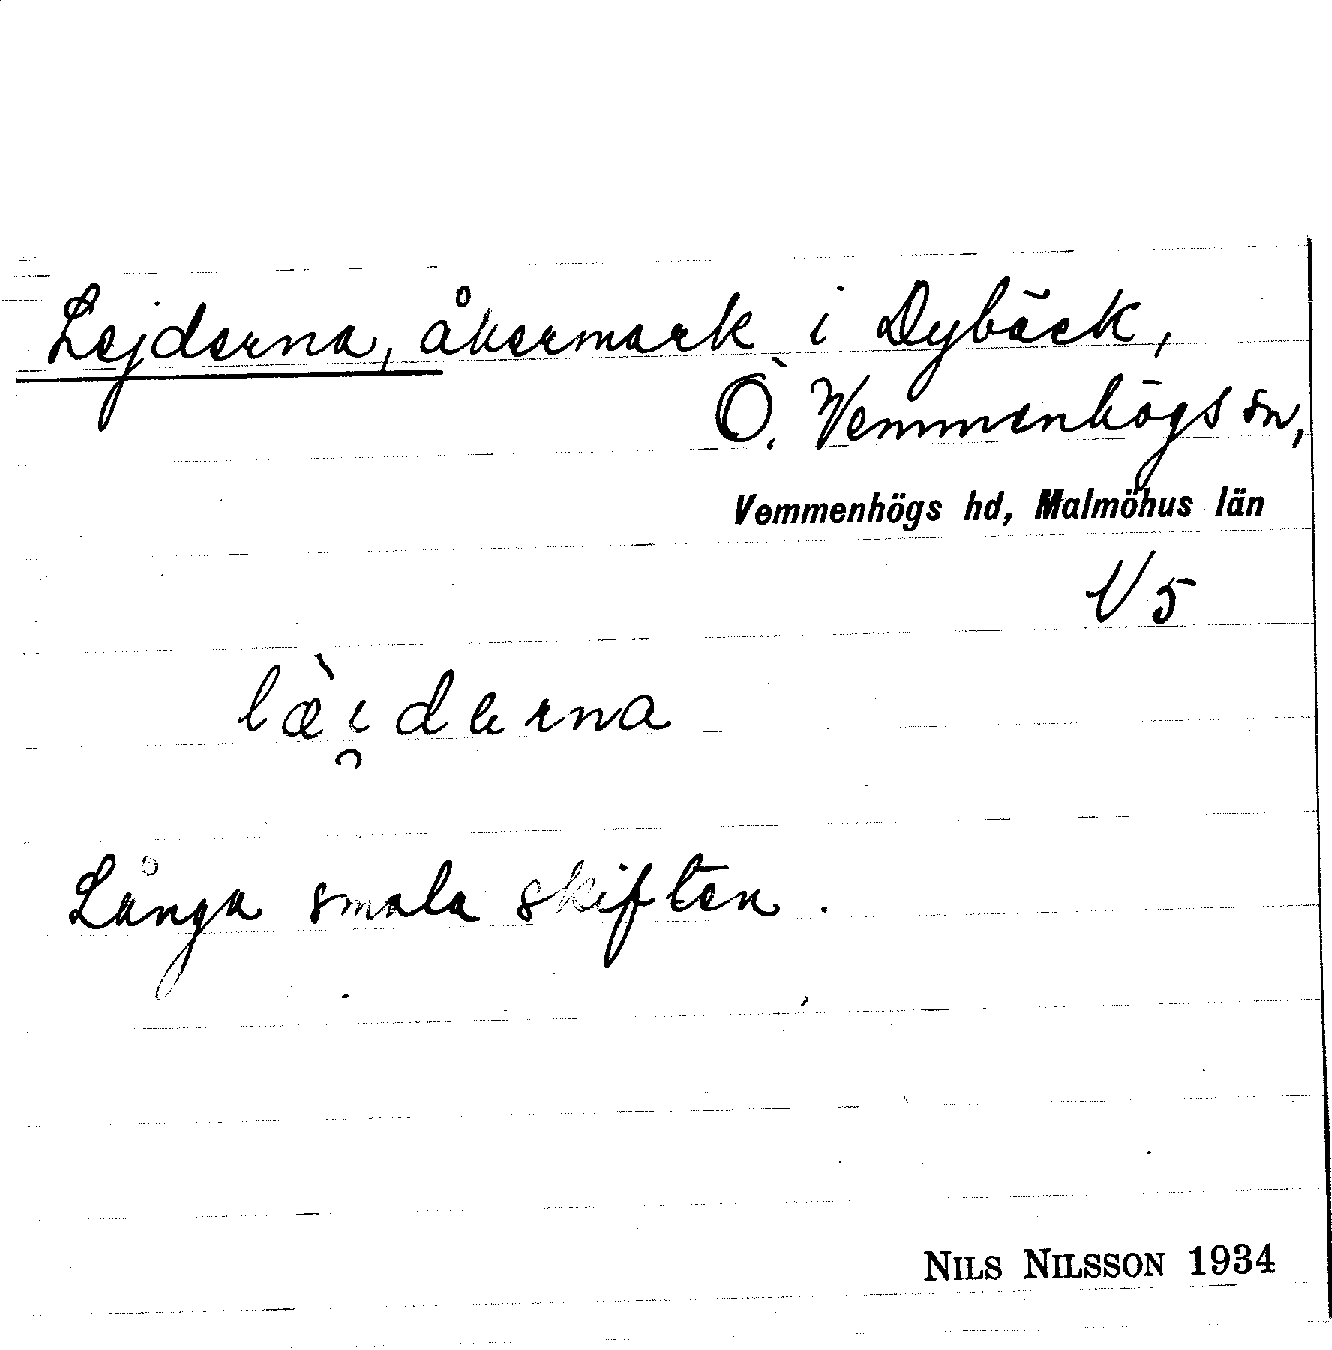 Lejderna, åkermark i Dybäck,
Ö. Vemmenhögs sn,
Vemmenhögs hd, Malmöhus län
V5
læ̀i̯derna
Långa smala skiften.
NILS NILSSON 1934